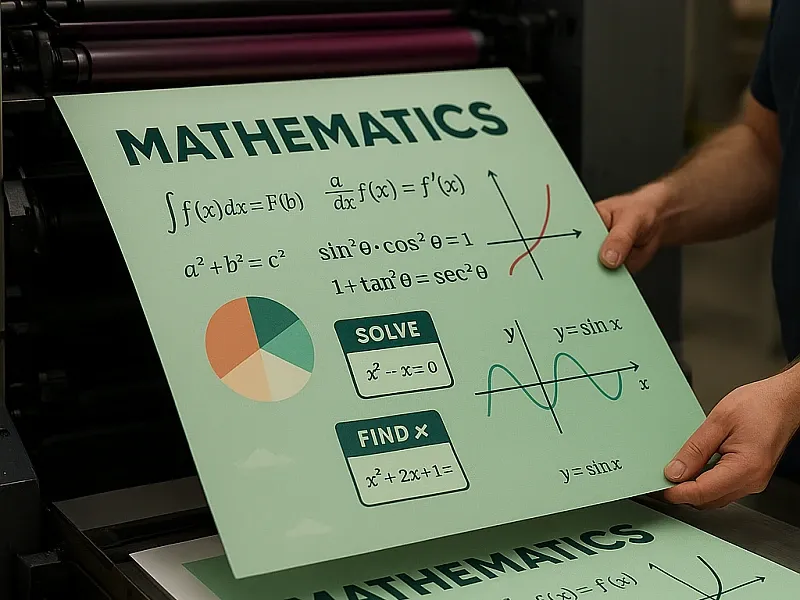 MATHEMATICS
∫f(x)dx=F(b)
a/dx f(x)=f'(x)
a²+b²=c²
sin²θ·cos²θ=1
1+tan²θ=sec²θ
SOLVE
x²--x=0
FIND ×
x²+2x+1=
y
y=sin x
x
y=sinx
MATHEMATICS
f(x)